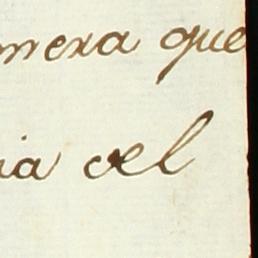 mera que
ia del